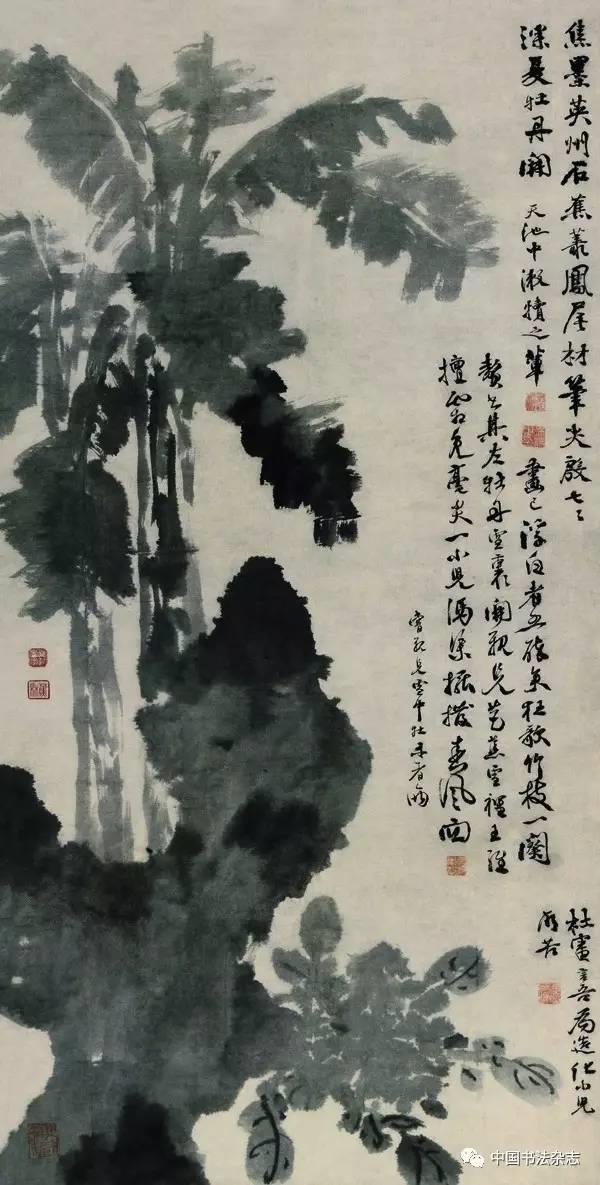 焦墨英州石蕉叢鳳尾材筆尖殷七々
深夏牡丹開 天池中漱犢之輩
畫已浮白者五醉矣狂歌竹枝一闋
贅書其左牡丹雪裏開親見芭蕉雪裡王維
擅霜兔毫尖一小兒馮渠擺撥春風面
嘗親見雪中牡丹者兩
杜審言吾為造化小兒
所苦
中国书法杂志